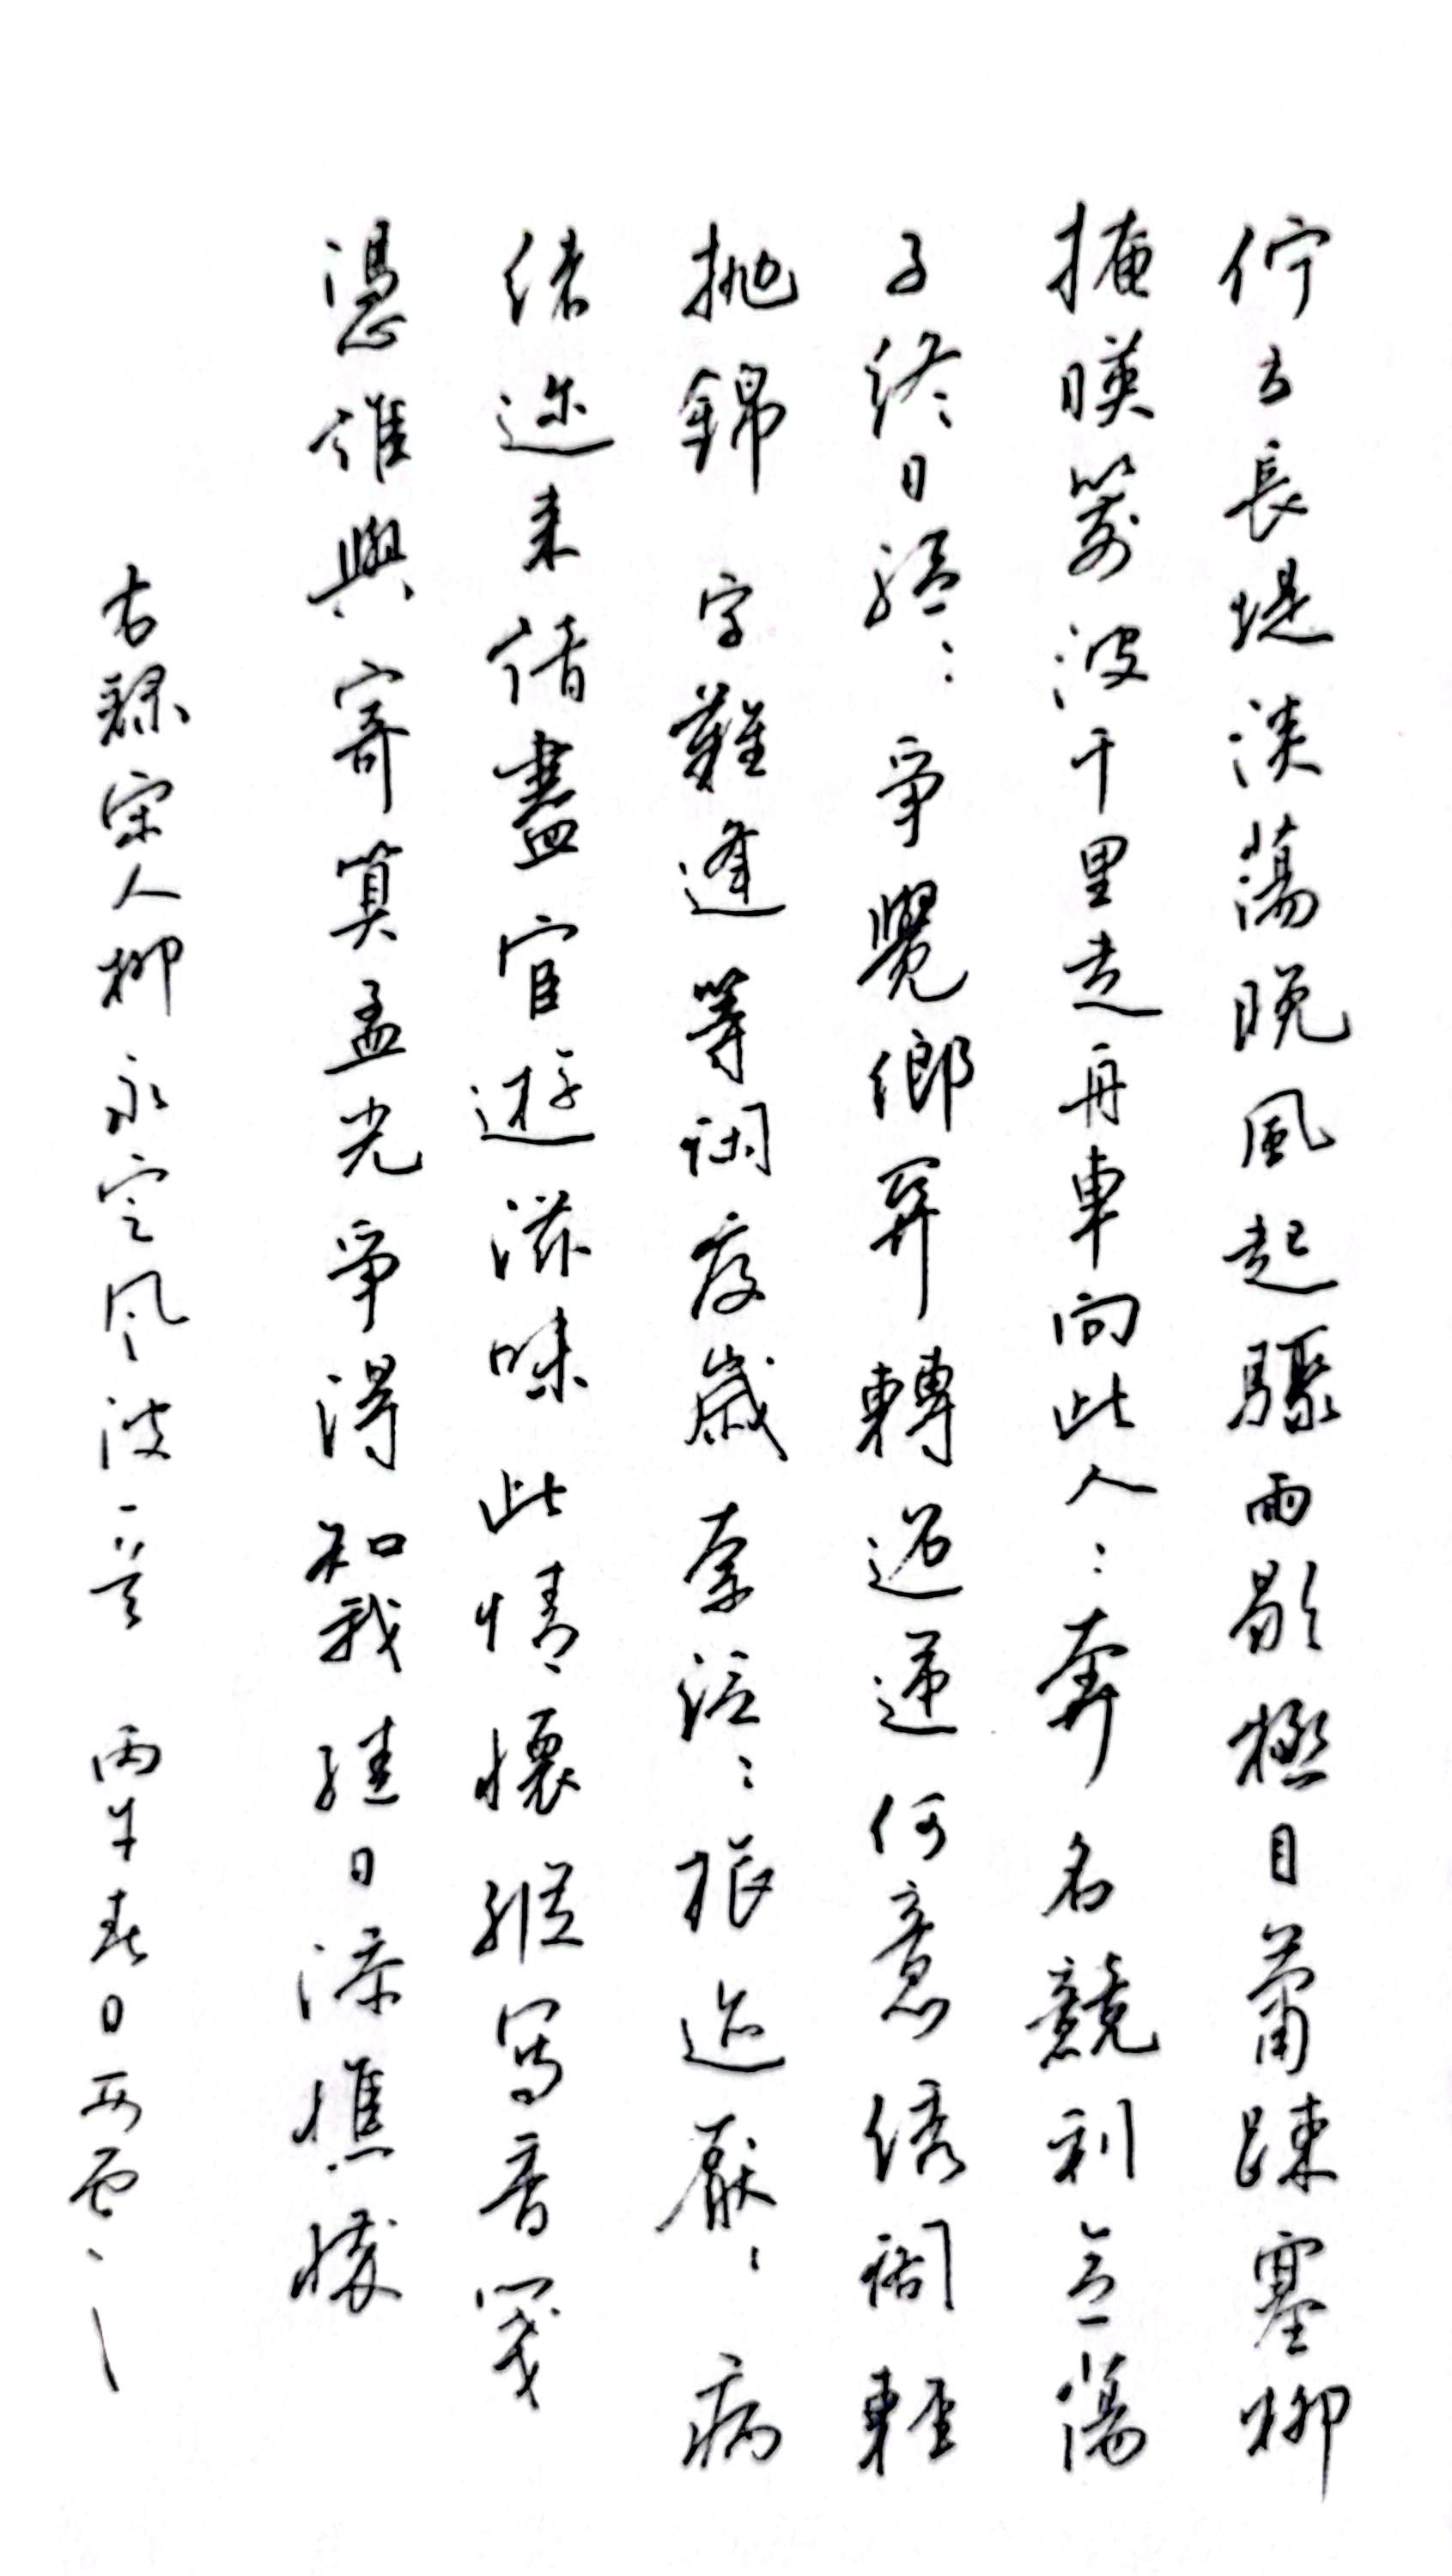 佇立長堤淡蕩晚風起驟雨歇極目蕭踈塞柳
掩暎箭波千里走舟車向此人〻奔名競利念蕩
子終日驅〻爭覺鄉關轉迢遞何意綉閣輕
拋錦字難逢等閑度歲奈泛〻旅迹厭〻病
緒迩来諳盡宦遊滋味此情懷縱寫香箋
憑誰與寄算孟光爭得知我繼日添憔悴
右録宋人柳永定風波一首 丙午春日